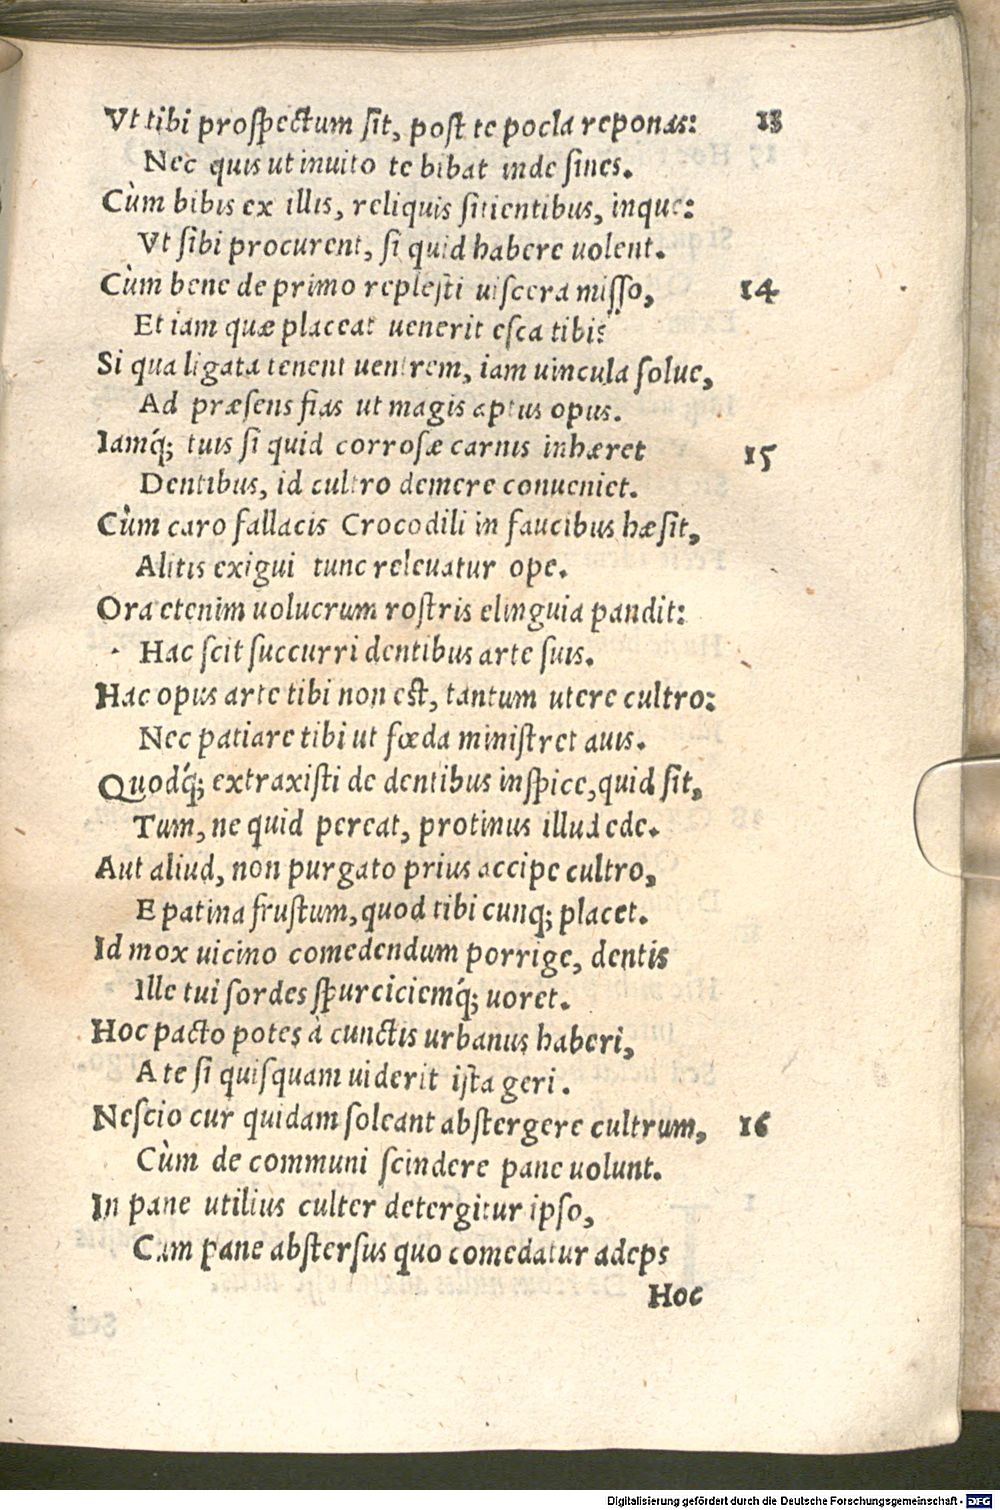 Vt tibi proſpectum ſit, poſt te pocla reponas: 13
Nec quis ut inuito te bibat inde ſines.
Cùm bibis ex illis, reliquis ſitientibus, inque:
Vt ſibi procurent, ſi quid habere uolent.
Cùm bene de primo repleſti uiſcera miſſo, 14
Et iam quæ placeat uenerit eſca tibi:
Si qua ligata tenent uentrem, iam uincula ſolue,
Ad præſens fias ut magis aptus opus.
Iamq́; tuis ſi quid corroſæ carnis inhæret 15
Dentibus, id cultro demere conueniet.
Cùm caro fallacis Crocodili in faucibus hæſit,
Alitis exigui tunc releuatur ope.
Ora etenim uolucrum roſtris elinguia pandit:
Hac ſcit ſuccurri dentibus arte ſuis.
Hac opus arte tibi non eſt, tantum utere cultro:
Nec patiare tibi ut fœda miniſtret auis.
Quodq́; extraxiſti de dentibus inſpice, quid ſit,
Tum, ne quid pereat, protinus illud ede.
Aut aliud, non purgato prius accipe cultro,
E patina fruſtum, quod tibi cunq; placet.
Id mox uicino comedendum porrige, dentis
Ille tui ſordes ſpurciciemq́; uoret.
Hoc pacto potes à cunctis urbanus haberi,
A te ſi quiſquam uiderit iſta geri.
Neſcio cur quidam ſoleant abſtergere cultrum, 16
Cùm de communi ſcindere pane uolunt.
In pane utilius culter detergitur ipſo,
Cum pane abſterſus quo comedatur adeps
Hoc
Digitalisierung gefördert durch die Deutsche Forschungsgemeinschaft - DFG